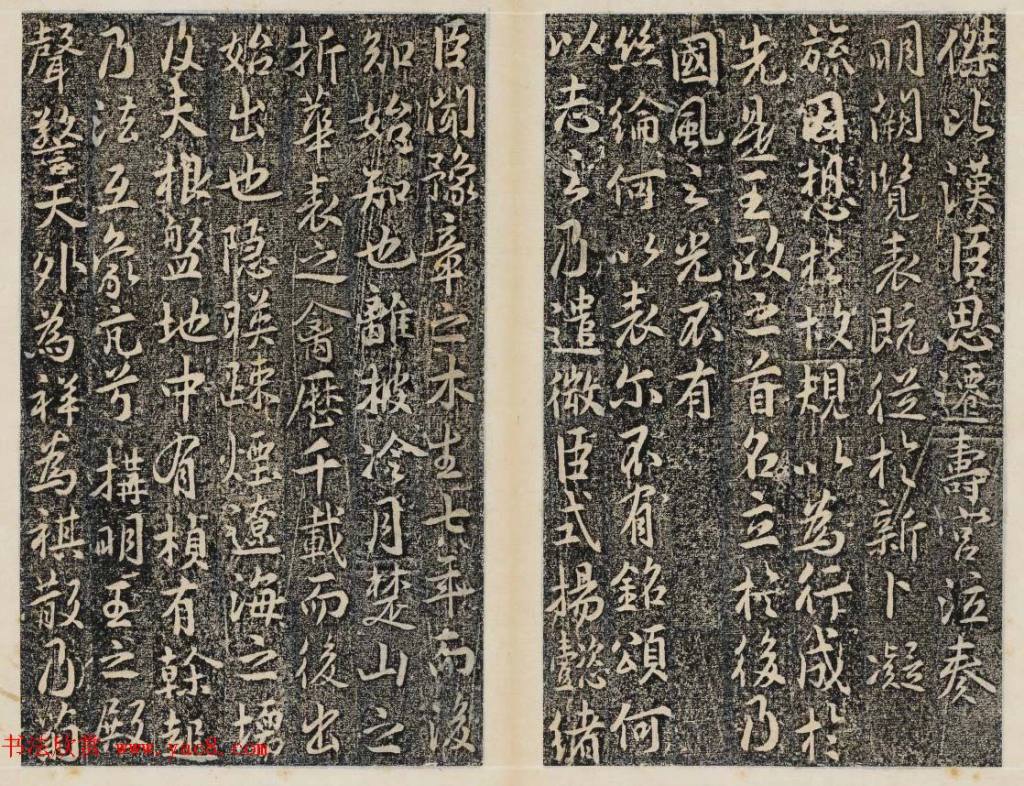 傑比漢臣思遷壽宮泣奏
明闕覽表既從於新卜凝
旒因想於故規以為行成於
先是王政之首名立於後乃
國風之光不有
絲綸何以表尔不有銘頌何
以志之乃遣微臣式揚懿緒
臣聞豫章之木生七年而後
知始知也離披冷月楚山之
折華表之禽歷千載而後出
始出也隐暎踈煙遼海之壖
及夫根盤地中有楨有幹起
乃法互象亢兮構明主之殿
聲警天外為祥為祺散乃為
书法欣赏 www.yac8.com